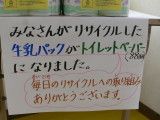 みなさんがリサイクルした
牛乳パックがトイレットペーパー
になりました。
毎日のリサイクルへの取り組み
ありがとうございます。